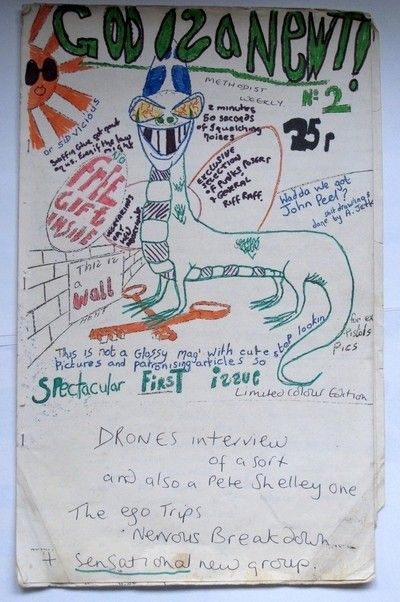 GOD IS A NEWT!
METHODIST
WEEKLY.
No: 2.
25p
2 minutes
50 seconds
of squelching
noises
or SID VICIOUS
NO
FREE
GIFT
INSIDE
EXCLUSIVE
SELECTION
of PUNKS POSERS
+ GENERAL
RIFF RAFF.
Wadda we got
John Peel?
shit drawings
done by A. Jett
This is
a
wall
This is not a Glossy Mag' with cute
Pictures and patronising articles so
stop lookin
for ex
Pistols
Pics
SPectacular FIRST issue
Limited Colour Edition
DRONES interview
of a sort
and also a Pete Shelley one
The ego Trips
Nervous Breakdown
+ sensational new group.